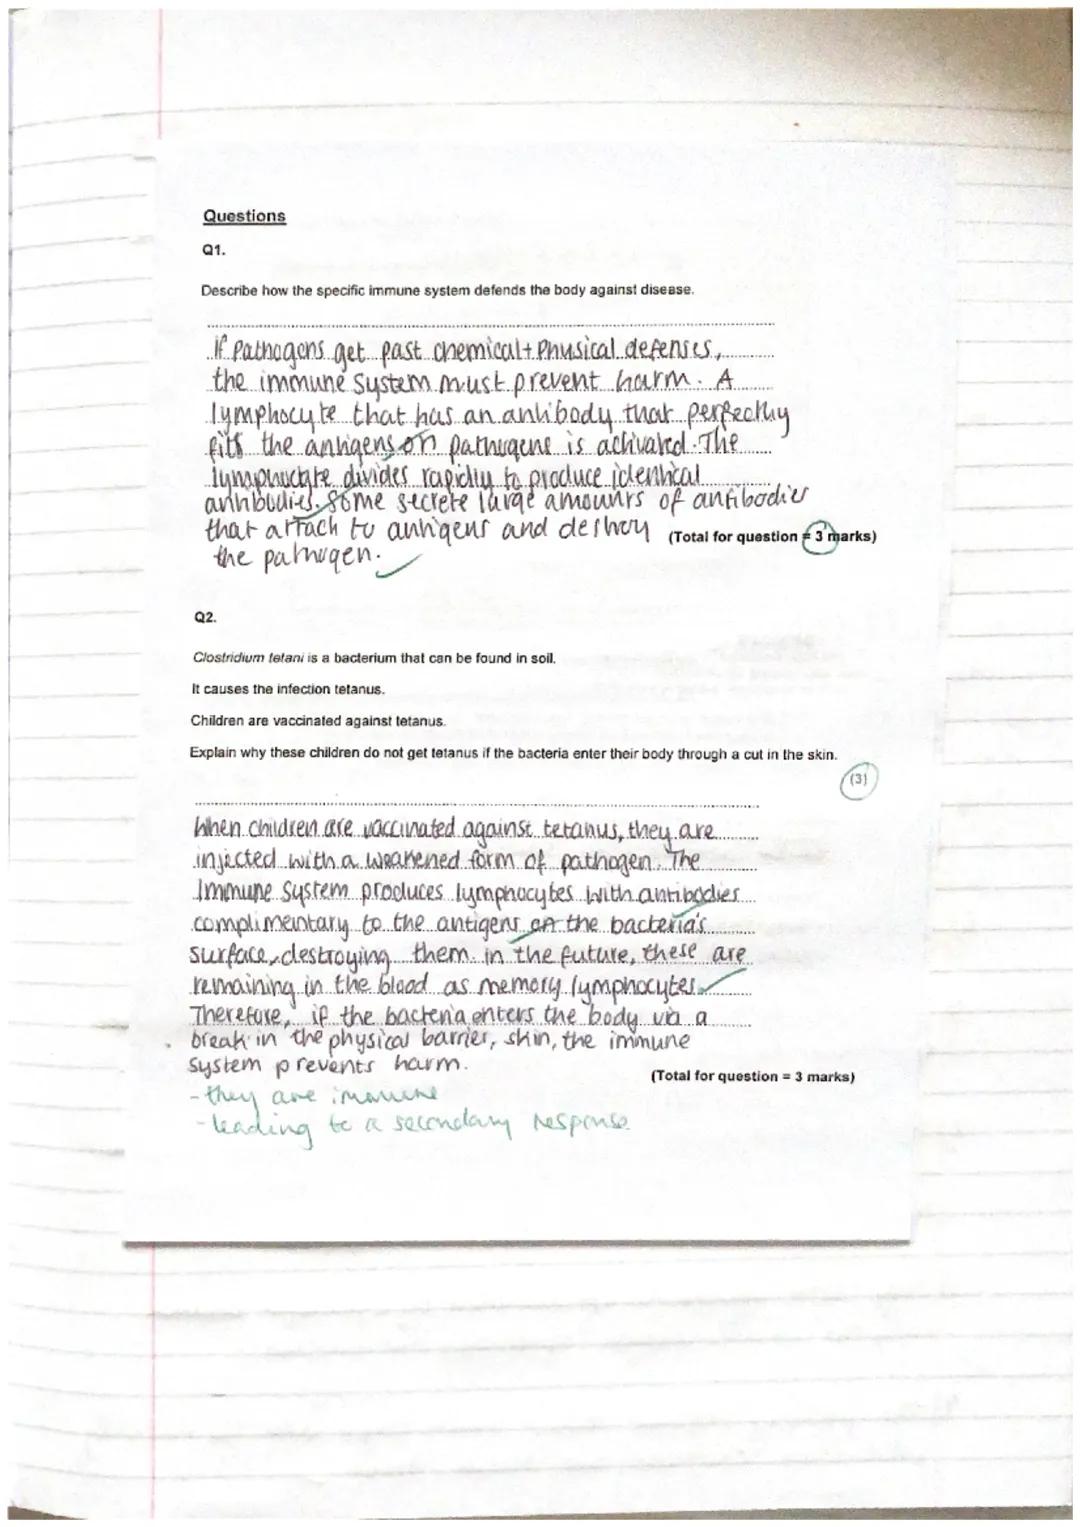 Questions
Q1.
Describe how the specific immune system defends the body against disease.
If Pathogens get past chemical + Physical defenses,
the immune System must prevent harm. A
lymphocyte that has an antibody that perfectly
fits the antigens on pathogens is activated. The
lymphocyte divides rapidly to produce identical
antibodies. Some secrete large amounts of antibodies
that attach to antigens and destroy
the pathogen.
(Total for question = 3 marks)
Q2.
Clostridium tetani is a bacterium that can be found in soil.
It causes the infection tetanus.
Children are vaccinated against tetanus.
Explain why these children do not get tetanus if the bacteria enter their body through a cut in the skin.
(3)
When children are vaccinated against tetanus, they are
injected with a weakened form of pathogen. The
Immune System produces lymphocytes with antibodies
complimentary to the antigens on the bacteria's
surface, destroying them. in the future, these are
remaining in the blood as memory lymphocytes.
Therefore, if the bacteria enters the body via a
break in the physical barrier, skin, the immune
System prevents harm.
(Total for question = 3 marks)
- they are immune
- leading to a secondary response